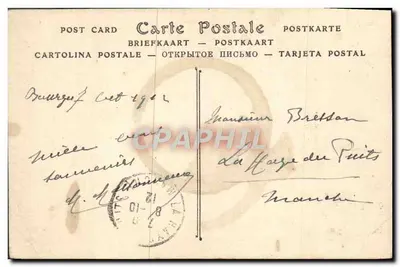 POST CARD Carte Postale POSTKARTE
BRIEFKAART — POSTKAART
CARTOLINA POSTALE — ОТКРЫТОЕ ПИСЬМО — TARJETA POSTAL
Oct 1912
Monsieur Bresson
La Haye du Puits
Manche
souvenirs
CPAPHIL
LA HAYE
8-10
12